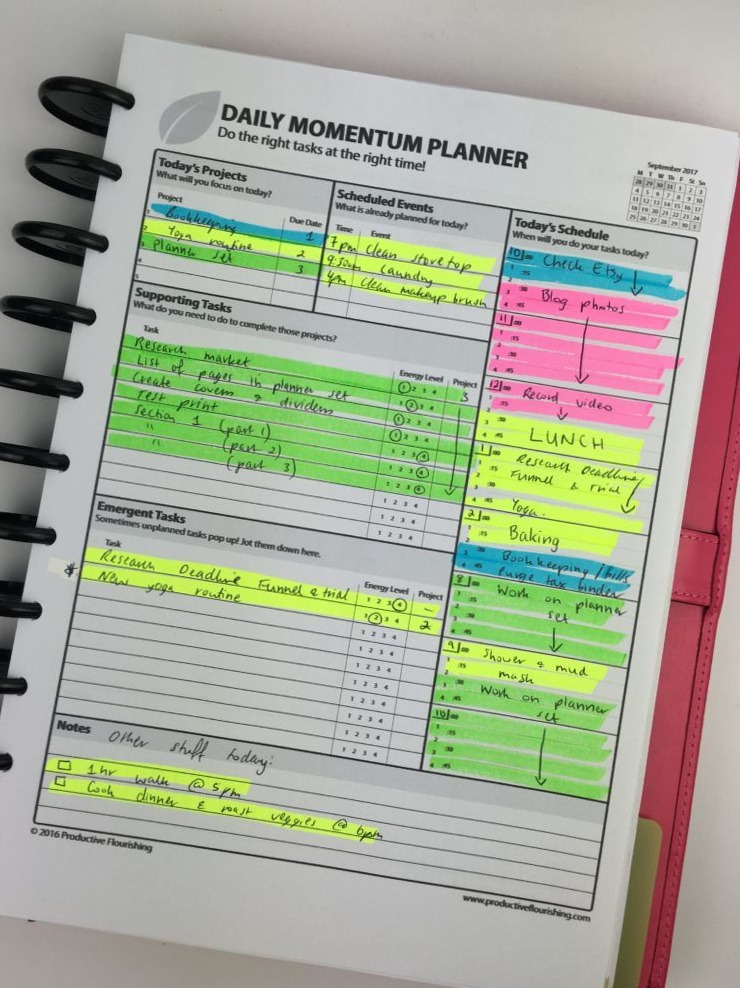 DAILY MOMENTUM PLANNER
Do the right tasks at the right time!
September 2017
M T W Th F St Sn
28 29 30 31 1 2 3
4 5 6 7 8 9 10
11 12 13 14 15 16 17
18 19 20 21 22 23 24
25 26 27 28 29 30 1
Today's Projects
What will you focus on today?
Project Due Date
1 Bookkeeping 1
2 Yoga routine 2
3 Planner set 3
4
5
Scheduled Events
What is already planned for today?
Time Event
7pm clean stovetop
9:30am laundry
4pm clean makeup brush
Supporting Tasks
What do you need to do to complete those projects?
Task Energy Level Project
Research market 1 2 3 4 3
List of pages in planner set 1 2 3 4
Create covers & dividers 1 2 3 4
Test print 1 2 3 4
Section 1 (part 1) 1 2 3 4
" (part 2) 1 2 3 4
" (part 3) 1 2 3 4
1 2 3 4
1 2 3 4
Emergent Tasks
Sometimes unplanned tasks pop up! Jot them down here.
Task Energy Level Project
Research Deadline Funnel & trial 1 2 3 4 –
New yoga routine 1 2 3 4 2
1 2 3 4
1 2 3 4
1 2 3 4
1 2 3 4
1 2 3 4
1 2 3 4
1 2 3 4
Today's Schedule
When will you do your tasks today?
10 :00 Check Etsy
1 :15
2 :30
3 Blog photos
4 :45
11 :00
1 :15
2
3 :30
4 :45
12 :00 Record video
1 :15
2
3 :30
4 :45 LUNCH
1 :00 Research Deadline
1 :15 Funnel & trial
2
3 :30
4 :45 Yoga.
2 :00
1 :15 Baking
2
3 :30 Bookkeeping / bills
4 :45 purge tax binder
8 :00 Work on planner
1 :15 set
2
3 :30
4 :45
9 :00 Shower & mud
1 :15 mask
2
3 :30 Work on planner
4 :45 set
10 :00
1 :15
2
3 :30
4 :45
Notes Other stuff today:
1hr walk @ 5pm
Cook dinner & roast veggies @ 6pm
© 2016 Productive Flourishing
www.productiveflourishing.com